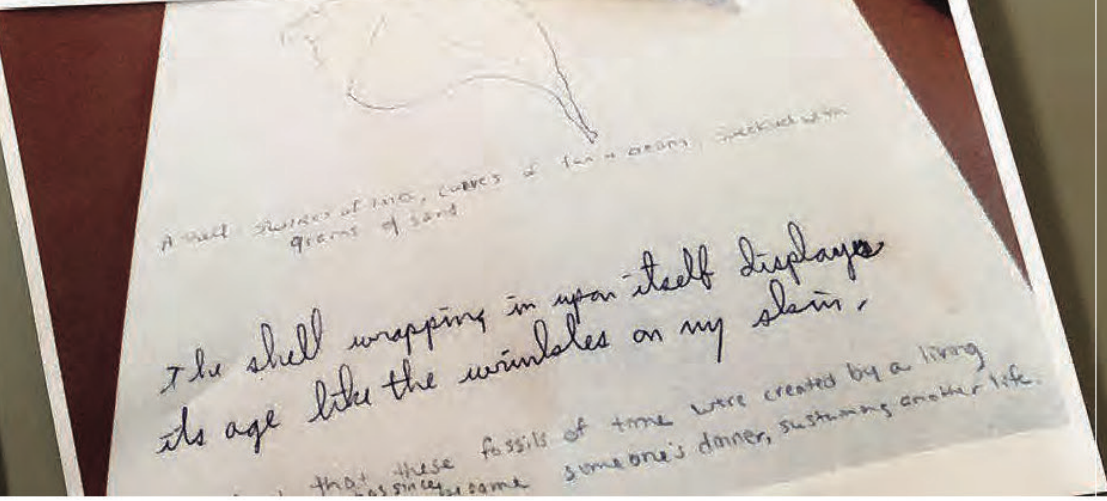 A shell swirls of time, curves of tan + cream, speckled with
grams of sand
The shell wrapping in upon itself displayes
its age like the wrinkles on my skin.
that these fossils of time were created by a living
has since became someone's dinner, sustaining another life.